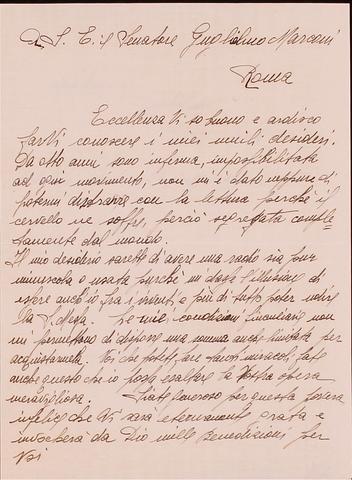 A S. E. il Senatore Guglielmo Marconi
Roma
Eccellenza Vi so buono e ardisco
farVi conoscere i miei umili desideri.
Da otto anni sono inferma, impossibilitata
ad ogni movimento, non mi è dato neppure di
potermi distrarre con la lettura perché il
cervello ne soffre, perciò segregata comple-
tamente dal mondo.
Il mio desiderio sarebbe di avere una radio sia pur
minuscola o usata purché mi dasse l'illusione di
essere anch'io fra i viventi, e più di tutto poter udire
la S. Messa. Le mie condizioni finanziarie non
mi permettono di disporre una somma anche limitata per
acquistarmela. Voi che potete fare tanti miracoli, fate
anche questo che io possa esaltare la Vostra opera
meravigliosa. Siate generoso per questa povera
infelice che Vi sarà eternamente grata e
invocherà da Dio mille benedizioni per
Voi